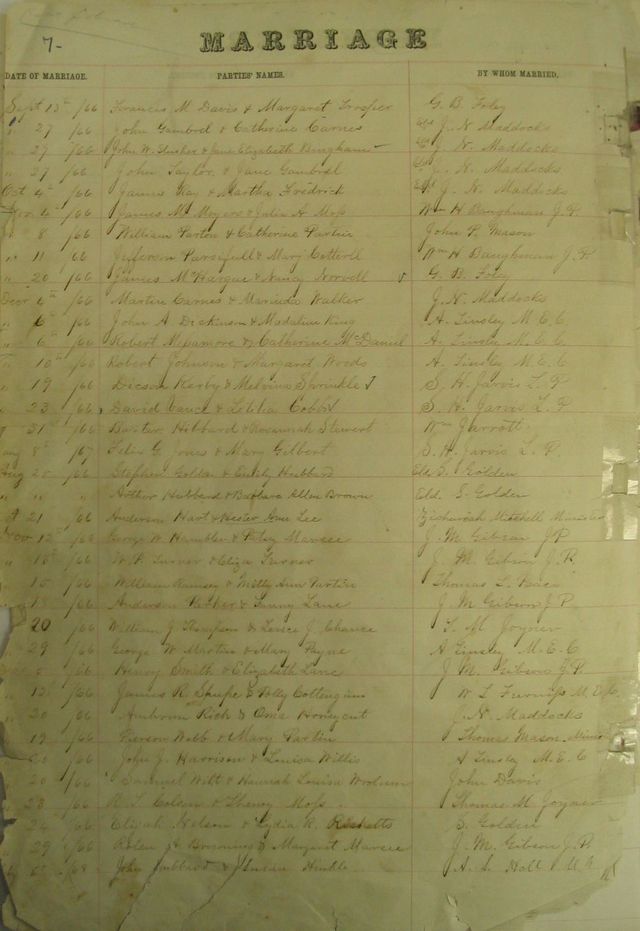 7-
MARRIAGE
DATE OF MARRIAGE. PARTIES' NAMES. BY WHOM MARRIED.
Sept 13th /66 Francis M Davis & Margaret Prosper G. B. Foley
" 27 /66 John Gambrel & Catherine Carnes Eld J. N Maddocks
" 27 /66 John W. Slusher & Jane Elizabeth Bingham Eld J. N. Maddocks
" 27 /66 John Taylor & Jane Gambrel Eld J. N. Maddocks
Oct 4th /66 James Kay & Martha Fredrick Eld J. N. Maddocks
Nov 4 /66 James M Moyers & Julia A Moss Wm H Baughman J. P.
" 8 /66 William Parton & Catherine Partin John P. Mason
" 11 66 Jefferson Parsifull & Mary Cottrell Wm H Baughman J. P.
" 20 /66 James McHargue & Nancy Norvell G. B. Foley
Decr 6th /66 Martin Carnes & Marinda Walker J. N. Maddocks
" 6th /66 John A. Dickinson & Madaline King A. Linsley M. E. C.
" 6th /66 Robert Mpamore & Catherine McDaniel A. Linsley M. E. C.
" 10th /66 Robert Johnson & Margaret Woods A. Linsley M. E. C
" 19 /66 Dicson Kerby & Melvina Shrinkle S. H. Jarvis L. P
" 23 /66 David Vance & Letitia S. H. Jarvis L. P.
31st /66 Baxter Hibbard & Roseannah Stewert Wm Jarrott
8th /67 Felix G. Jones & Mary Gilbert S. H. Jarvis L. P.
Aug 20 /66 Stephen Golden & Emily Hubbard Eld S. Golden
" " " Arthur Hubbard & Barbara Allen Brown Eld. S. Golden
21 /66 Anderson Hart & Hester Ann Lee Zichariah Mitchell Minister
Nov 12th /66 George W Hamblen & Patsy Marcee J. M. Gibson JP
15th /66 W. P. Turner & Eliza Turner J. M. Gibson J. P.
15 /66 William Ramsey & Milly Ann Partin Thomas L.
18 /66 Anderson & Lane J. M Gibson J P
20 /66 William J. Thompson & J. Chance T. M Joyner
" 29 /66 George W Martin & Mary Payne A Linsley M. E. C
/66 Henry Smith & Elizabeth Lane J. M. Gibson J. P.
" 12 /66 James R. & Polly Cottengim W. L.
" 20 66 Ambrom Rick & Oma Honeycut J. N. Maddocks
19 /66 Pierson Webb & Mary Partin Thomas Mason
/66 John J. Harrison & Louisa Willis A Linsley M. E. C
20 /66 Samuel Witt & Hannah Louisa John Davis
" 23 /66 R. L. Colson & Moss Thomas M Joyner
" 24 /66 Elijah Nelson & Lydia R. Ricketts S. Golden
" 29 /66 & Margaret Marcee J. M. Gibson J. P.
John Hubbard & Susan Hinkle A. S. Hall